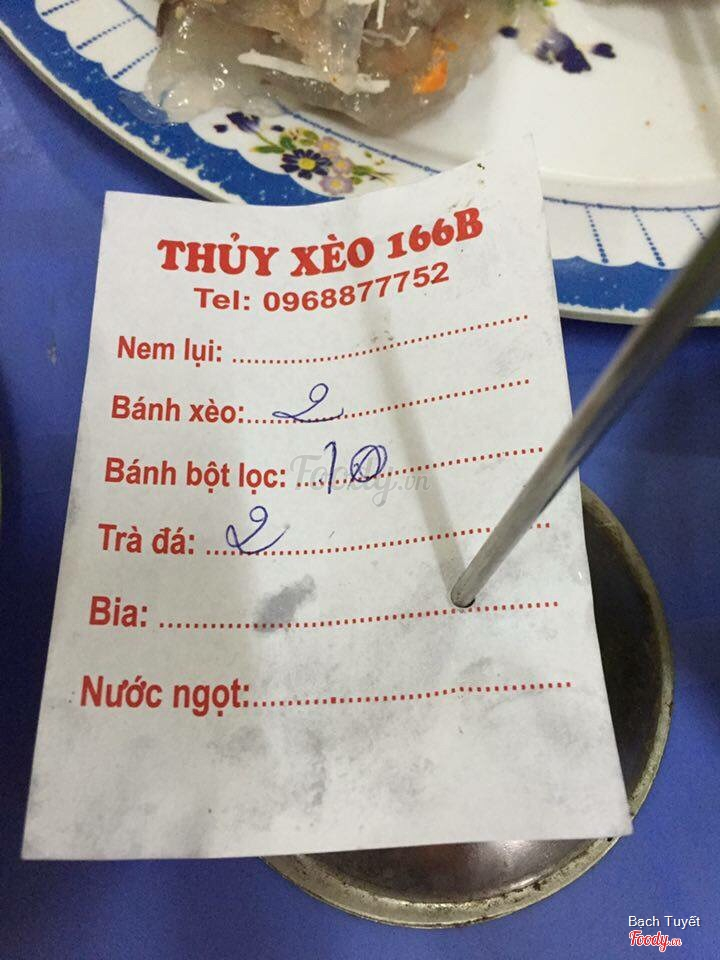 THỦY XÈO 166B
Tel: 0968877752
Nem lụi: ........................................
Bánh xèo:....2............................
Bánh bột lọc: ....10......................
Trà đá: ....2................................
Bia: ................................................
Nước ngọt:....................................
Foody.vn
Bạch Tuyết
Foody.vn